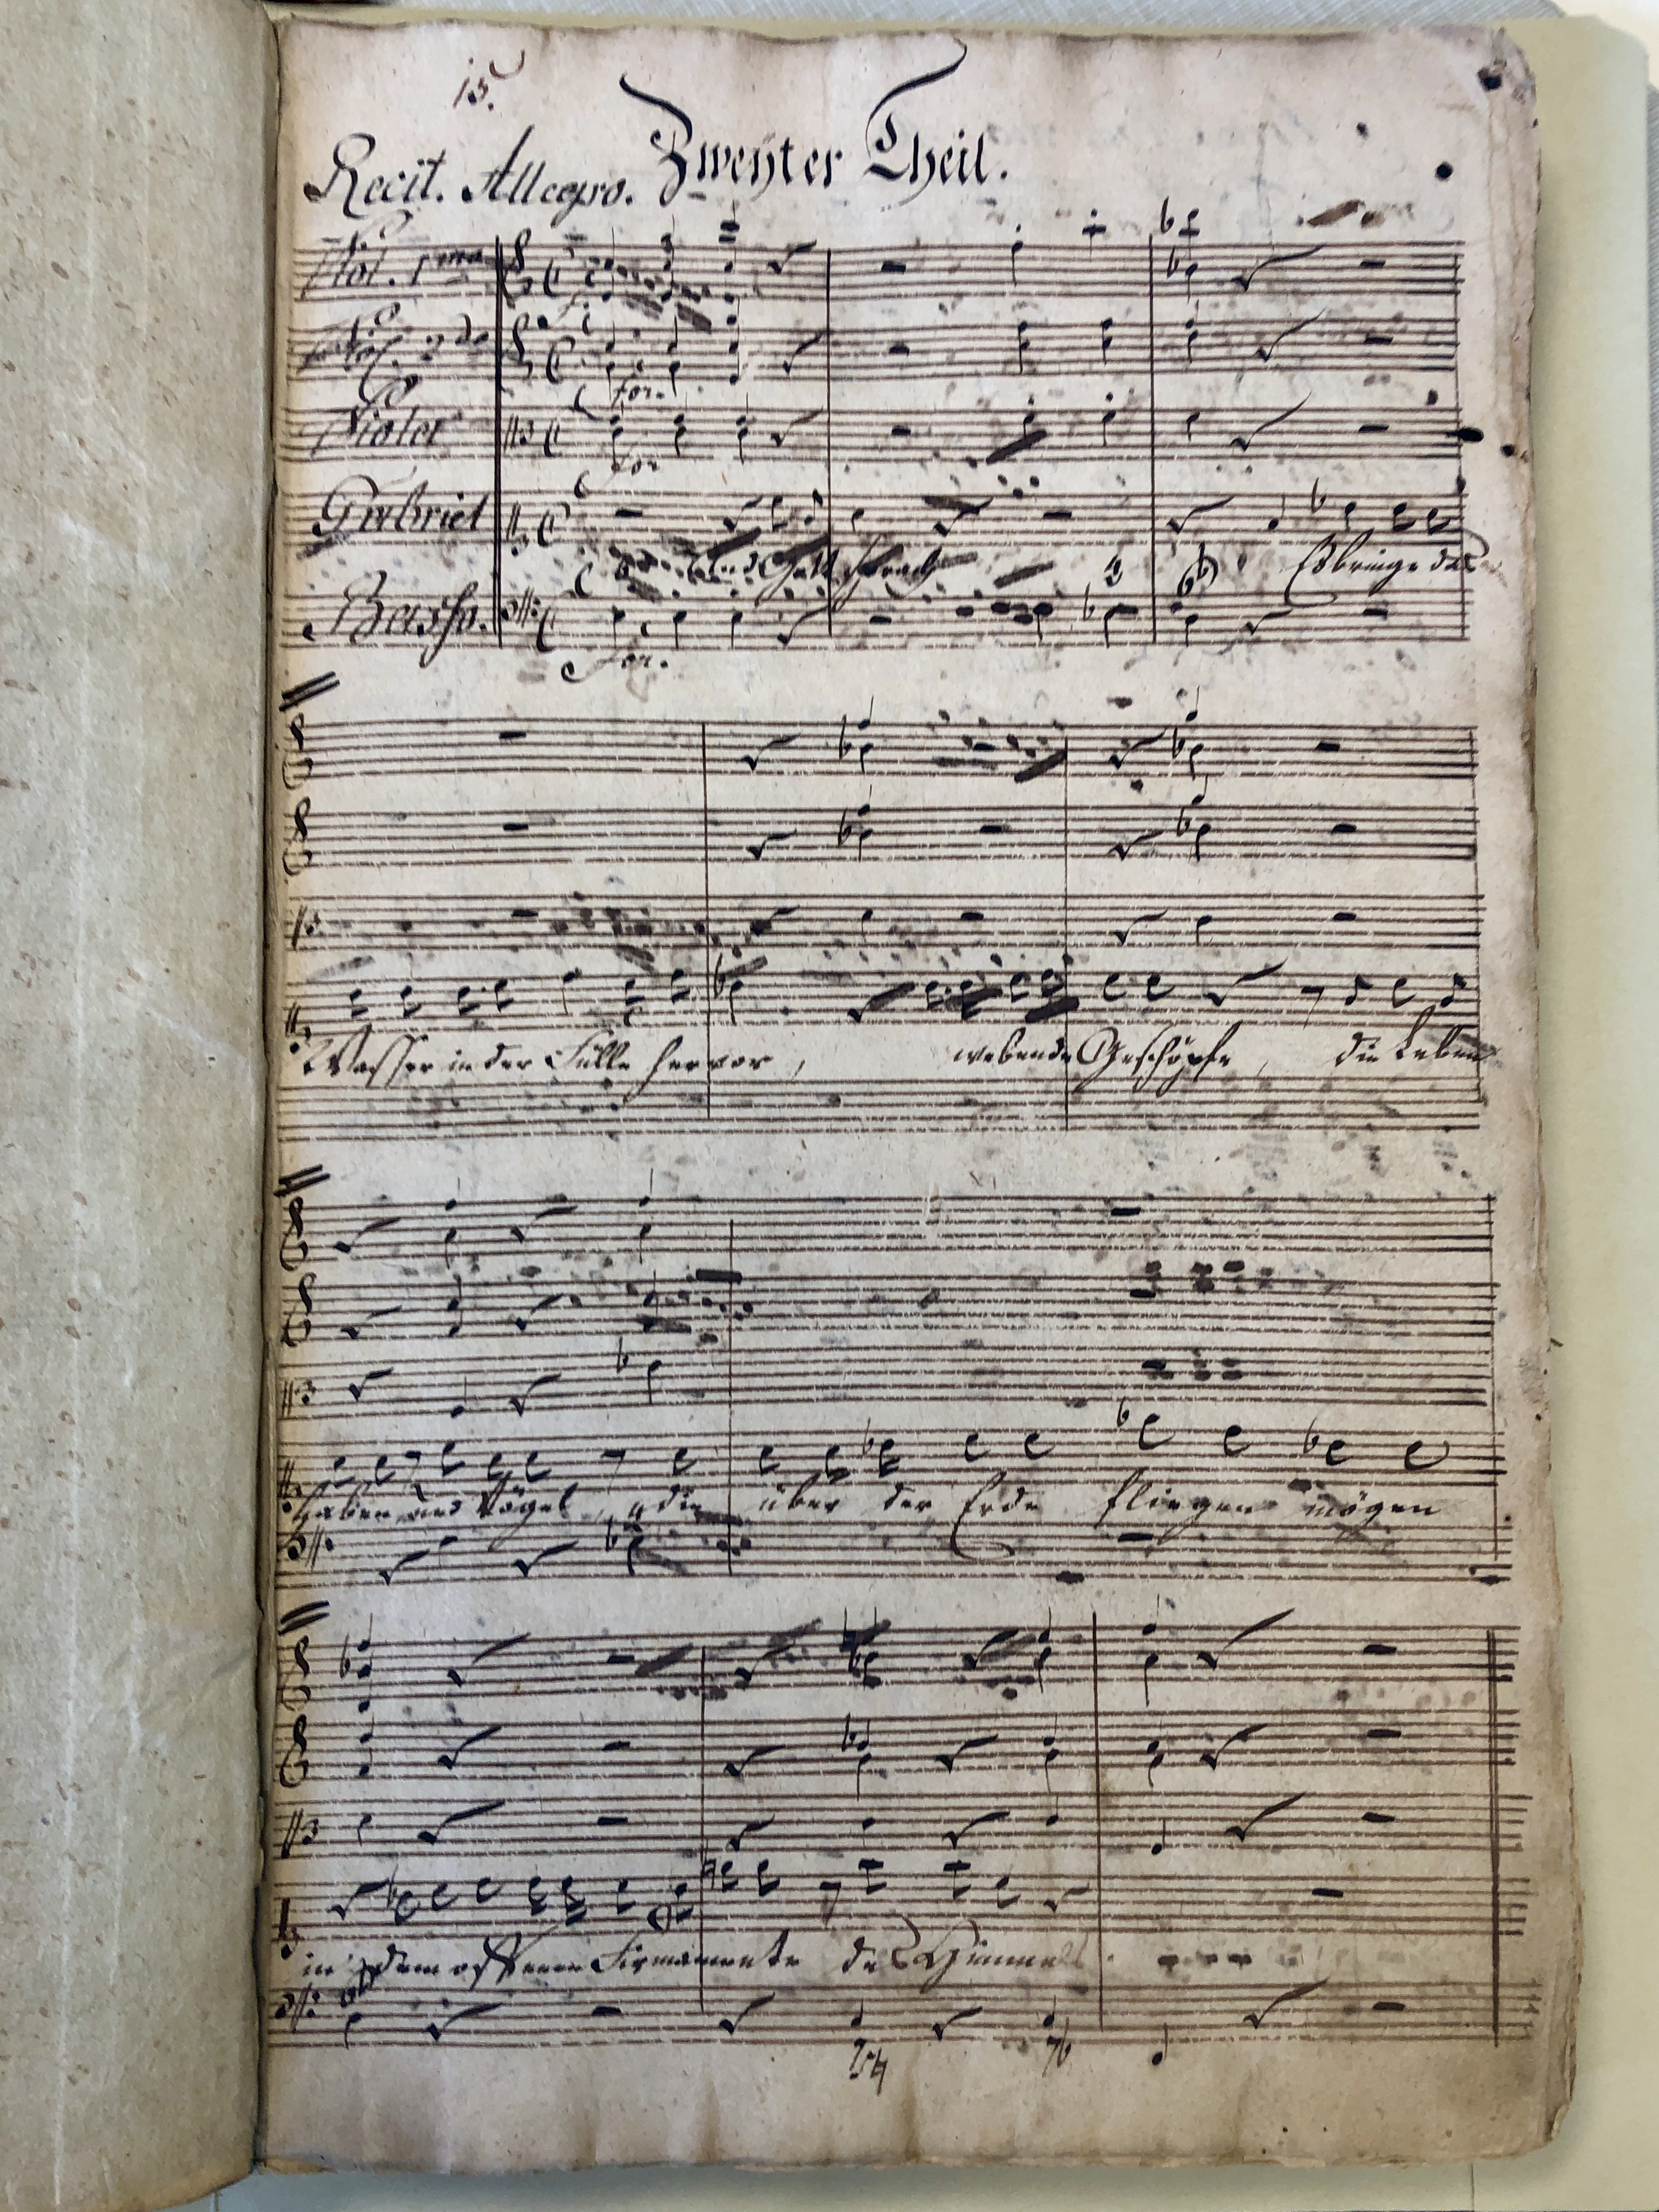 15.
Zweyter Theil.
Recit. Allegro.
Viol. 1ma
for.
Viol. 2da
for.
Violet
for
Gabriel
Und Gott sprach
Es bringe das
Basso.
for.
Wasser in der Fülle hervor, webende Geschöpfe, die Leben
haben und Vögel, die über der Erde fliegen mögen
in dem offenen Firmamente des Himmels.